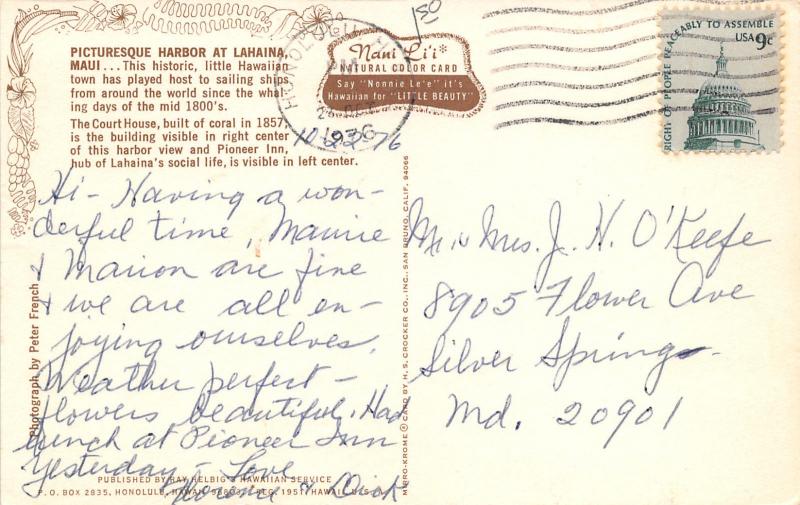 PICTURESQUE HARBOR AT LAHAINA,
MAUI...This historic, little Hawaiian
town has played host to sailing ships
from around the world since the whal-
ing days of the mid 1800's.
The Court House, built of coral in 1857
is the building visible in right center
of this harbor view and Pioneer Inn,
hub of Lahaina's social life, is visible in left center.
Nani Li'i*
NATURAL COLOR CARD
Say "Nonnie Le'e" it's
Hawaiian for "LITTLE BEAUTY"
HONOLULU
RIGHT OF PEOPLE PEACEABLY TO ASSEMBLE
USA 9c
Hi - Having a won-
derful time, Maurie
& Marion are fine
& we are all en-
joying ourselves.
Weather perfect -
flowers beautiful. Had
lunch at Pioneer Inn
Yesterday - Love
Florence & Dick
Photograph by Peter French
PUBLISHED BY RAY HELBIG'S HAWAIIAN SERVICE
P.O. BOX 2835, HONOLULU, HAWAII
MIRRO-KROME ® CARD BY H. S. CROCKER CO., INC., SAN BRUNO, CALIF. 94066
Mr & Mrs. J. H. O'Keefe
8905 Flower Ave
Silver Spring
Md. 20901